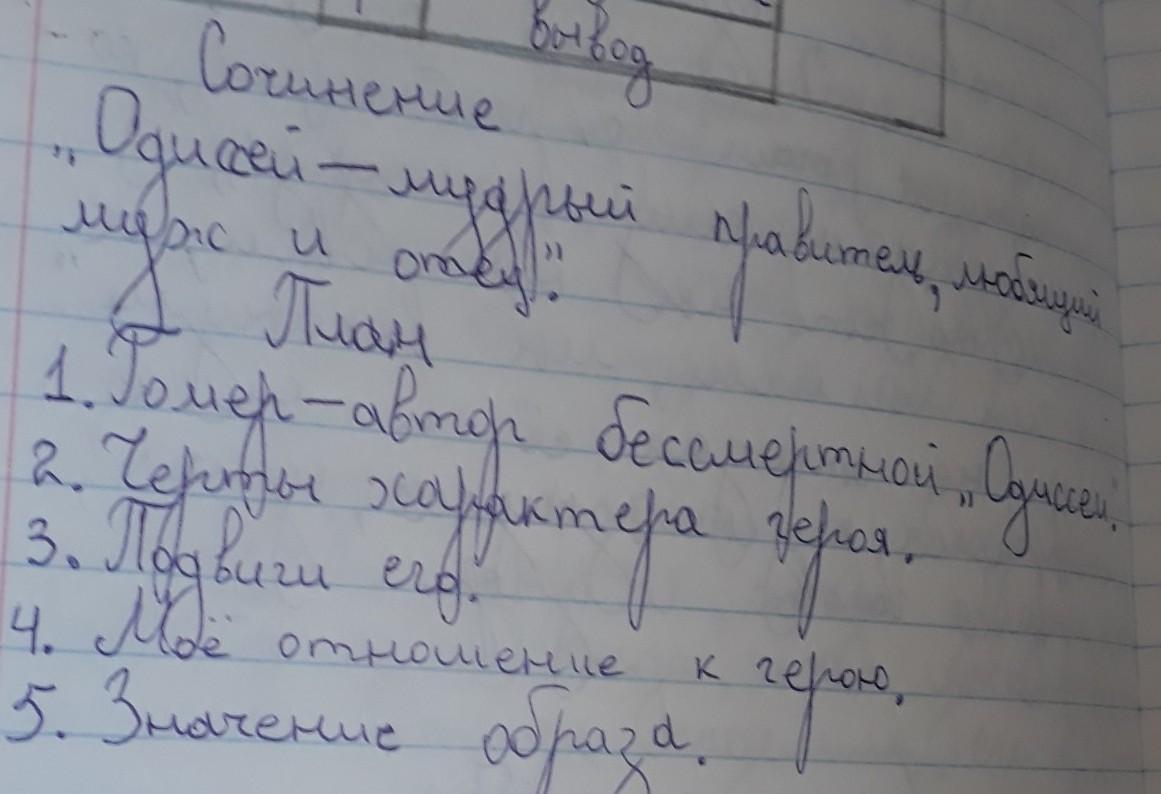 Вывод
Сочинение
„Одиссей — мудрый правитель, любящий
муж и отец".
План
1. Гомер - автор бессмертной „Одиссеи.
2. Черты характера героя.
3. Подвиги его.
4. Моё отношение к герою.
5. Значение образа.